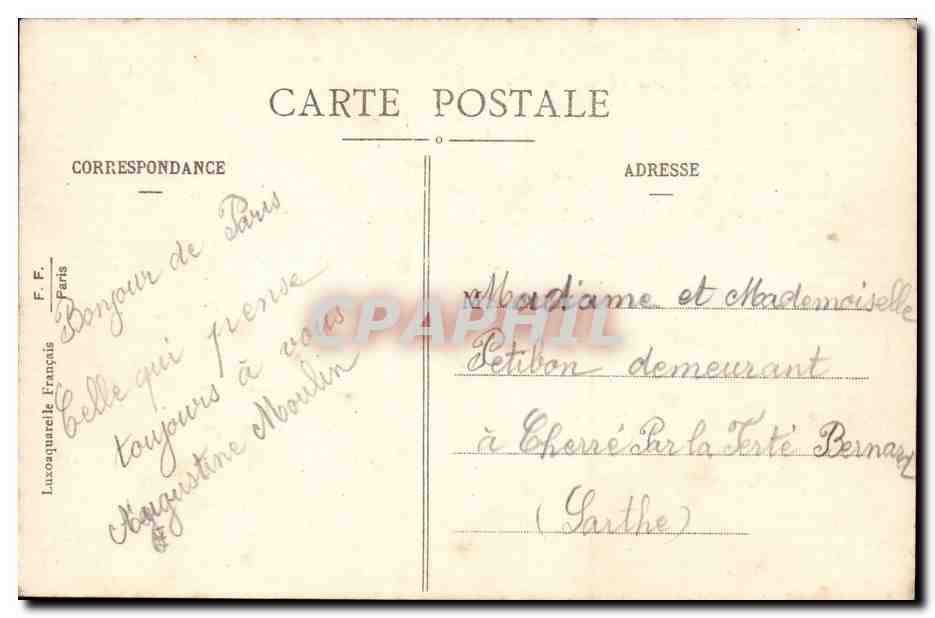 CARTE POSTALE
CORRESPONDANCE
Bonjour de Paris
Celle qui pense
toujours à vous
Augustine Moulin
Luxoaquarelle Français
F. F.
Paris
ADRESSE
Madame et Mademoiselle
Petibon demeurant
à Cherré Par la Ferté Bernard
(Sarthe)
CPAPHIL